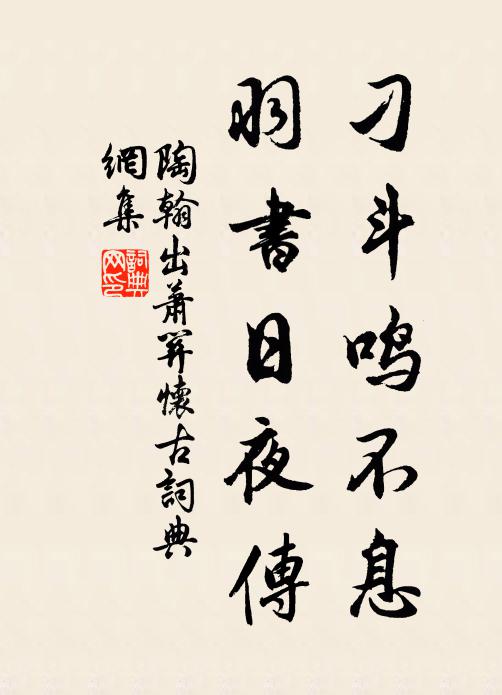 刁斗鸣不息
羽書日夜傳
陶翰出蕭關懷古詞典
網集
詞典网印